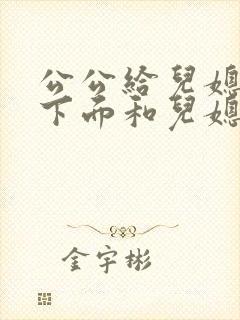 公公給兒媳
下而和兒媳
金宇彬